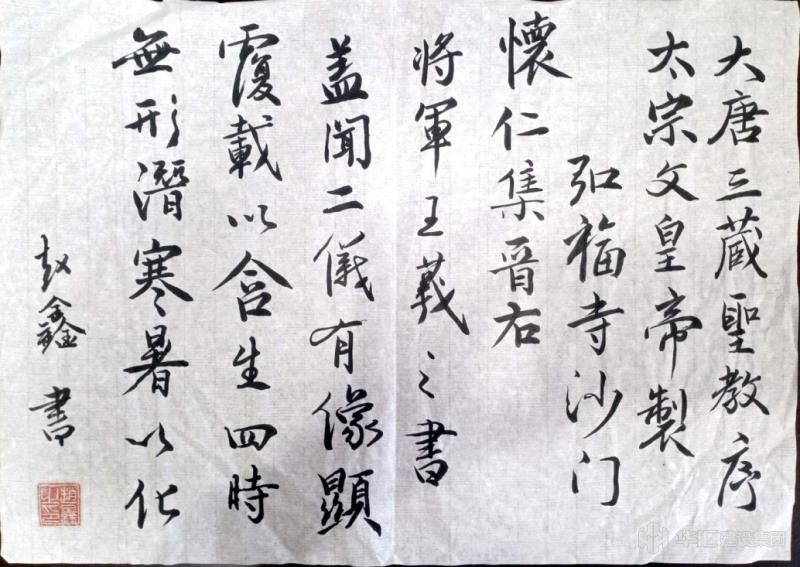 大唐三蔵聖教序
太宗文皇帝製
弘福寺沙门
懷仁集晉右
将軍王羲之書
盖聞二儀有像顯
覆載以含生四時
無形潛寒暑以化
赵鑫書
华汇建设集团